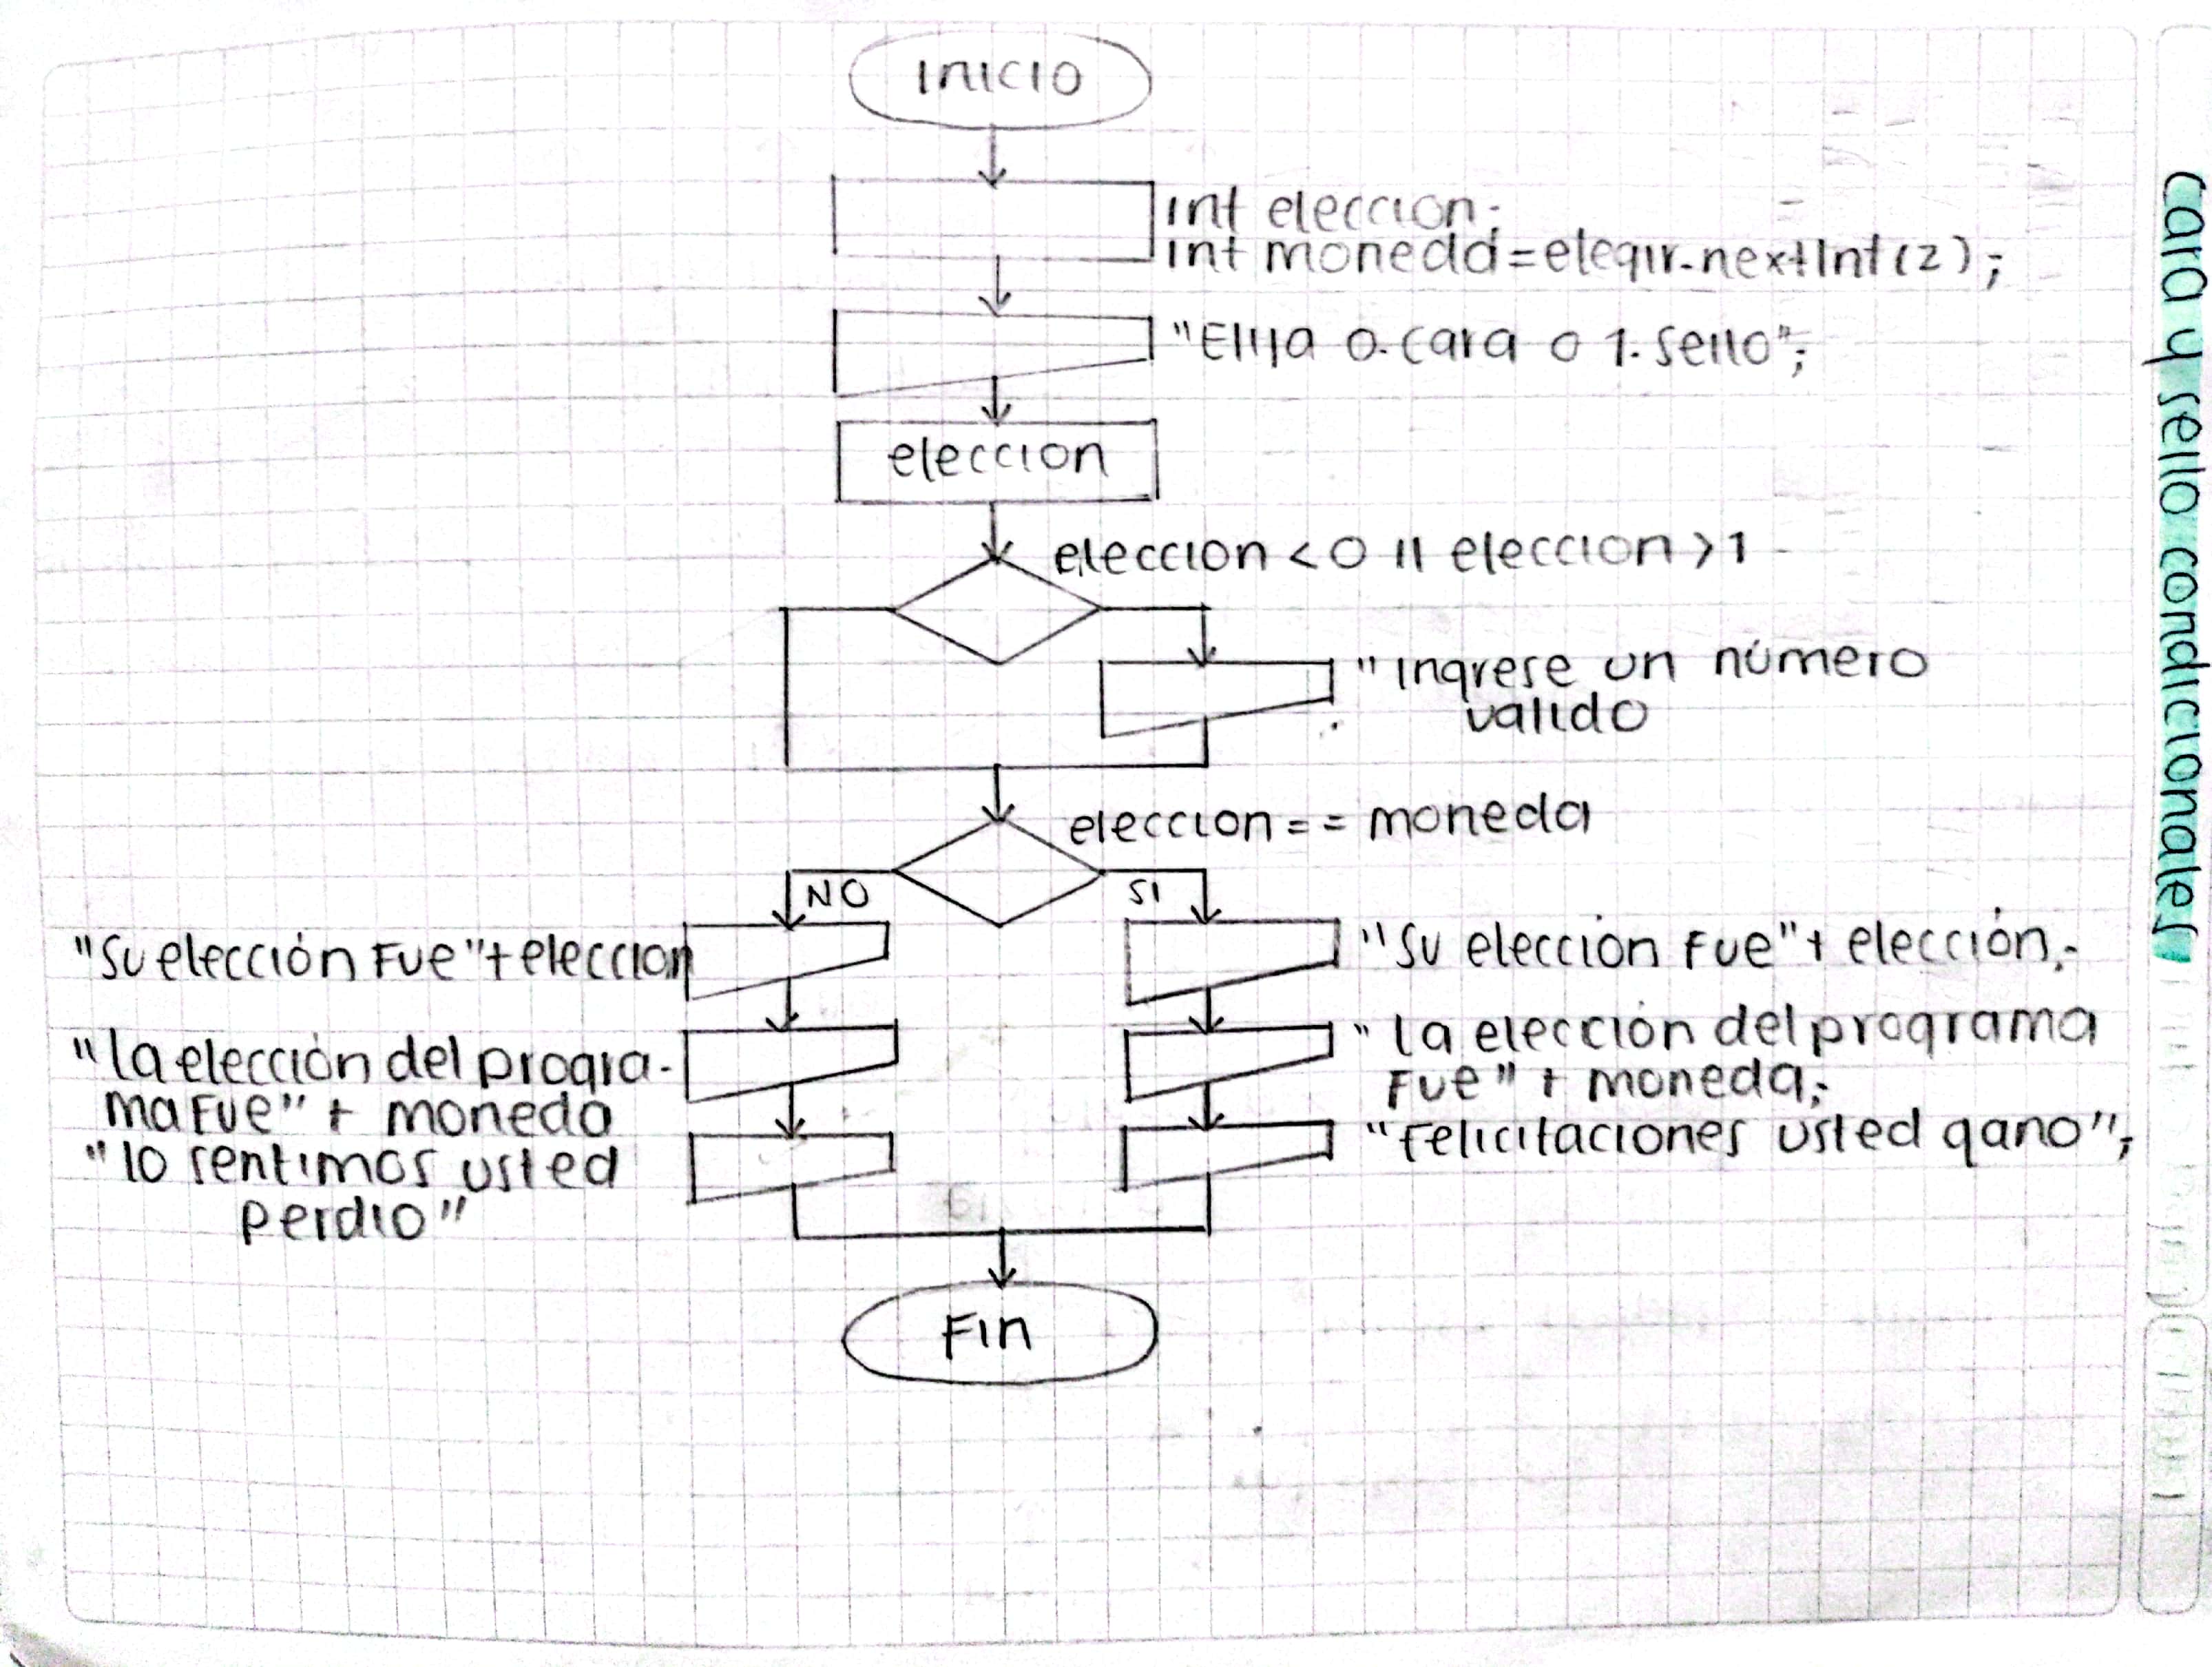 Inicio
int eleccion;
int moneda=elegir.nextInt(2);
"Elija 0.cara o 1.sello";
eleccion
eleccion < 0 || eleccion > 1
"Ingrese un número
valido
eleccion == moneda
NO
SI
"Su elección Fue"+eleccion
"la elección del progra-
ma Fue" + moneda
"lo sentimos usted
perdio"
"Su elección Fue"+ elección;
"la elección del programa
Fue" + moneda;
"felicitaciones usted gano";
Fin
Cara y sello condicionales